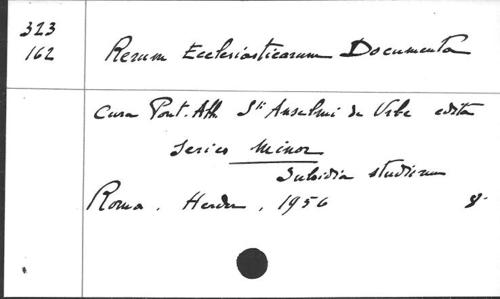 323
162
Rerum Ecclesiasticarum Documenta
cura Pont. Ath. Sti Anselmi de Urbe edita
Series Minor
Subsidia studiorum
Roma. Herder, 1956 8°